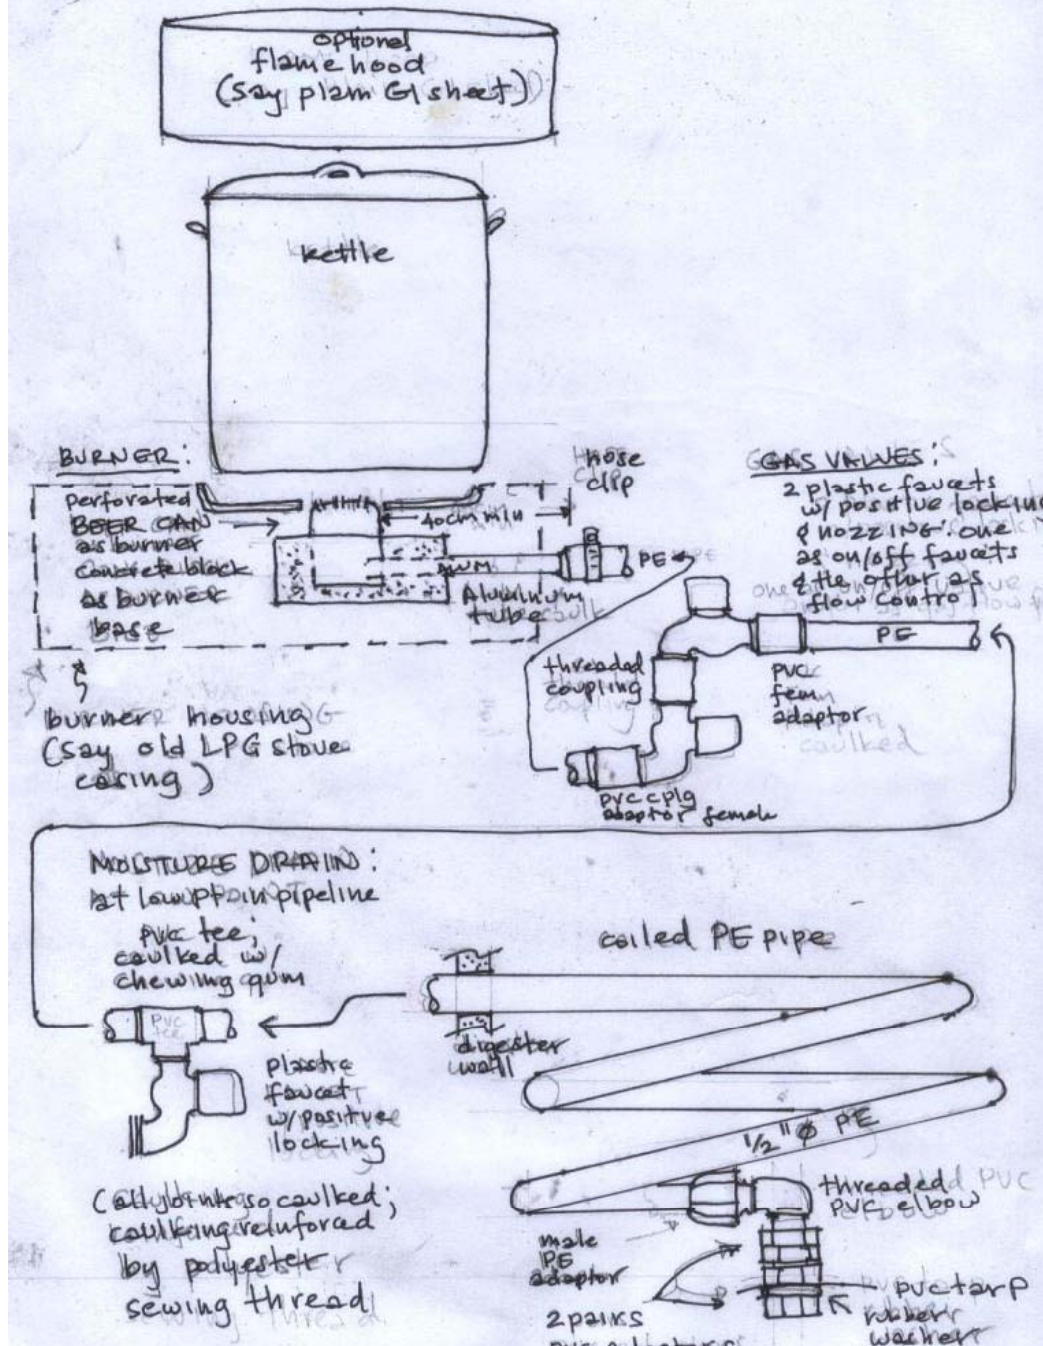 optional
flame hood
(say plain GI sheet)
kettle
BURNER:
perforated
BEER CAN
as burner
concrete block
as burner
base
40cm min
hose
clip
PE
ALUM
Aluminum
tube
burner housing
(say old LPG stove
casing)
GAS VALVES:
2 plastic faucets
w/ positive locking
& nozzing: one
as on/off faucets
& the other as
flow control
PE
threaded
coupling
PVC
fem
adaptor
caulked
pvc cplg
adaptor female
MOISTURE DRAIN:
at low pt in pipeline
PVC tee;
caulked w/
chewing gum
PVC
tee
plastic
faucet
w/positive
locking
(all joints so caulked;
caulking reinforced
by polyester
sewing thread
coiled PE pipe
digester
wall
1/2" Ø PE
threaded
PVC elbow
male
PE
adaptor
2 pairs
PVC tarp
rubber
washer